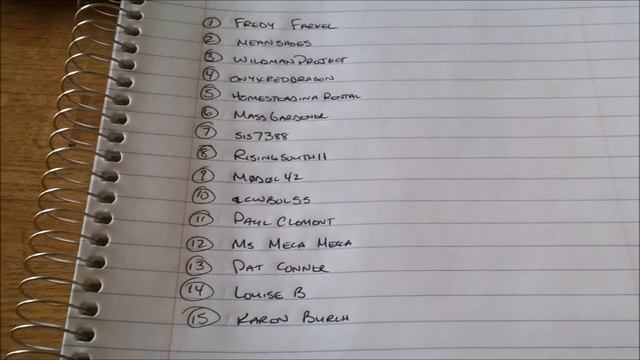 1 FREDY FARKEL
2 MEANSHOES
3 WILDMANPROJECT
4 ONYXREDDRAGON
5 HOMESTEADINARENTAL
6 MASSGARDENER
7 SIS7388
8 RISINGSOUTH11
9
10
11 PAUL CLEMONT
12 MS MECA MECCA
13 PAT CONNER
14 LOUISE B
15 KAREN BURCH